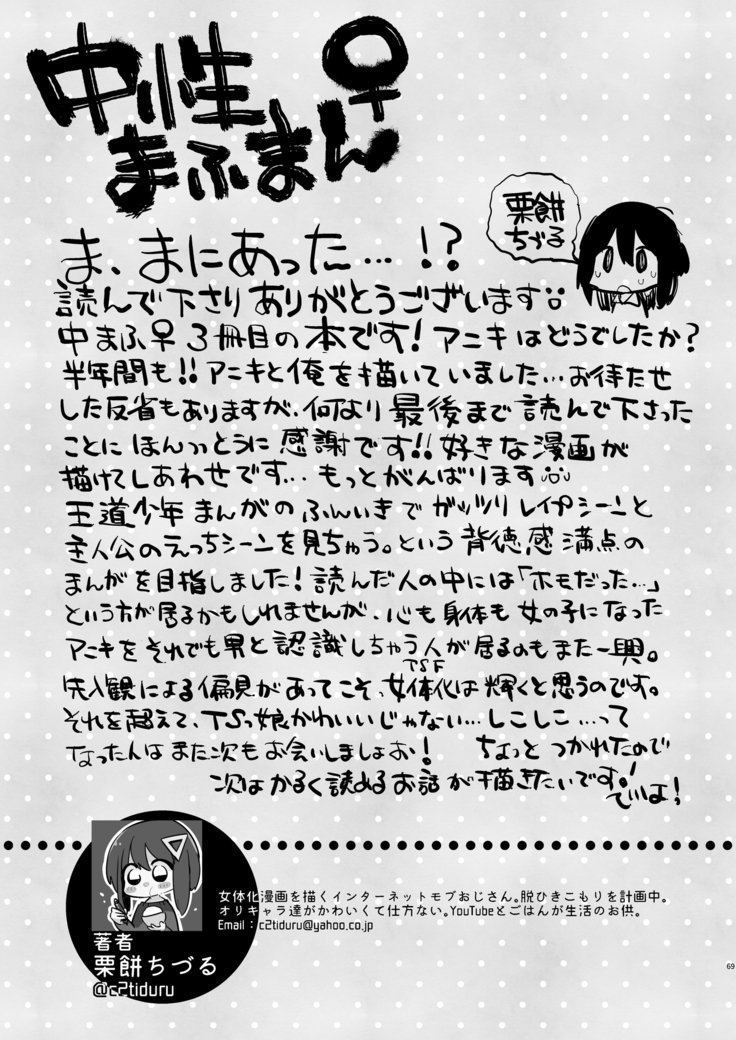 中性
まふまん♀
栗餅
ちづる
ま、まにあった…!?
読んで下さりありがとうございます
中まふ♀3冊目の本です!アニキはどうでしたか?
半年間も!!アニキと俺を描いていました…お待たせ
した反省もありますが、何より最後まで読んで下さった
ことにほんっっとうに感謝です!!好きな漫画が
描けてしあわせです…もっとがんばります
王道少年まんがのふんいきでガッツリレイプシーンと
主人公のえっちシーンを見ちゃう。という背徳感満点の
まんがを目指しました!読んだ人の中には「ホモだった…」
という方が居るかもしれませんが、心も身体も女の子になった
アニキをそれでも男と認識しちゃう人が居るのもまた一興。
TSF
先入観による偏見があってこそ、女体化は輝くと思うのです。
それを超えて、TSっ娘かわいいじゃない…しこしこ…って
なった人はまた次もお会いしましょお!ちょっとつかれたので
次はかるく読めるお話が描きたいです!
でいは!
女体化漫画を描くインターネットモブおじさん。脱ひきこもりを計画中。
オリキャラ達がかわいくて仕方ない。YouTubeとごはんが生活のお供。
Email:c2tiduru@yahoo.co.jp
著者
栗餅ちづる
@c2tiduru
69